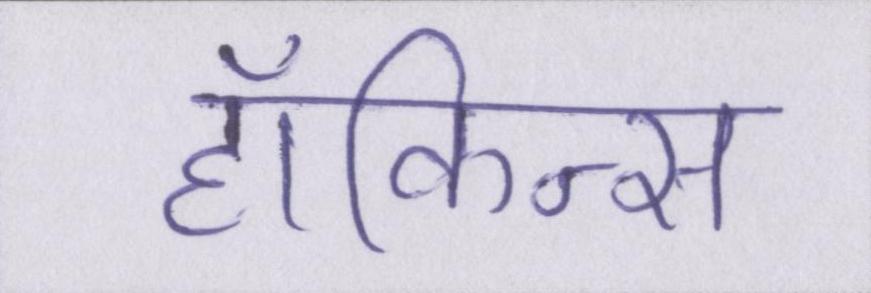 हॉकिन्स